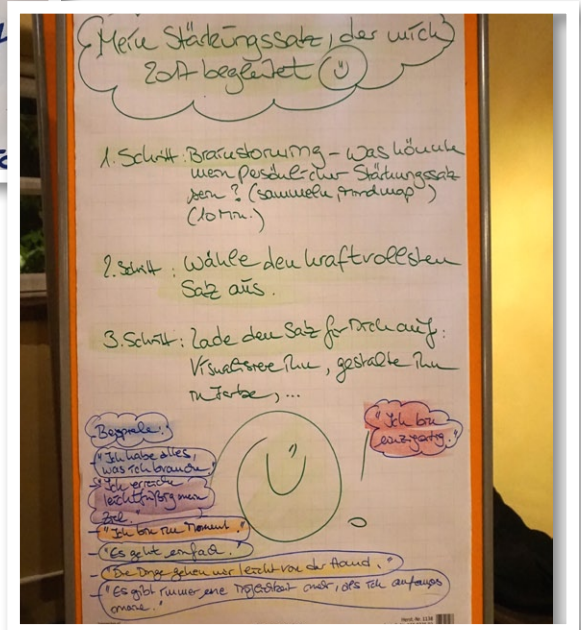 Mein Stärkungssatz, der mich
2017 begleitet
1. Schritt: Brainstorming - Was könnte
mein persönlicher Stärkungssatz
sein? (sammeln, Mindmap)
(10 Min.)
2. Schritt: Wähle den kraftvollsten
Satz aus.
3. Schritt: Lade den Satz für Dich auf:
Visualisiere ihn, gestalte ihn
in Farbe, ...
"Ich bin
einzigartig."
Beispiele:
- "Ich habe alles,
was ich brauche."
- "Ich erreiche
leichtfüßig mein
Ziel."
- "Ich bin im Moment."
- "Es geht einfach."
- "Die Dinge gehen mir leicht von der Hand."
- "Es gibt immer eine Möglichkeit mehr, als ich anfangs